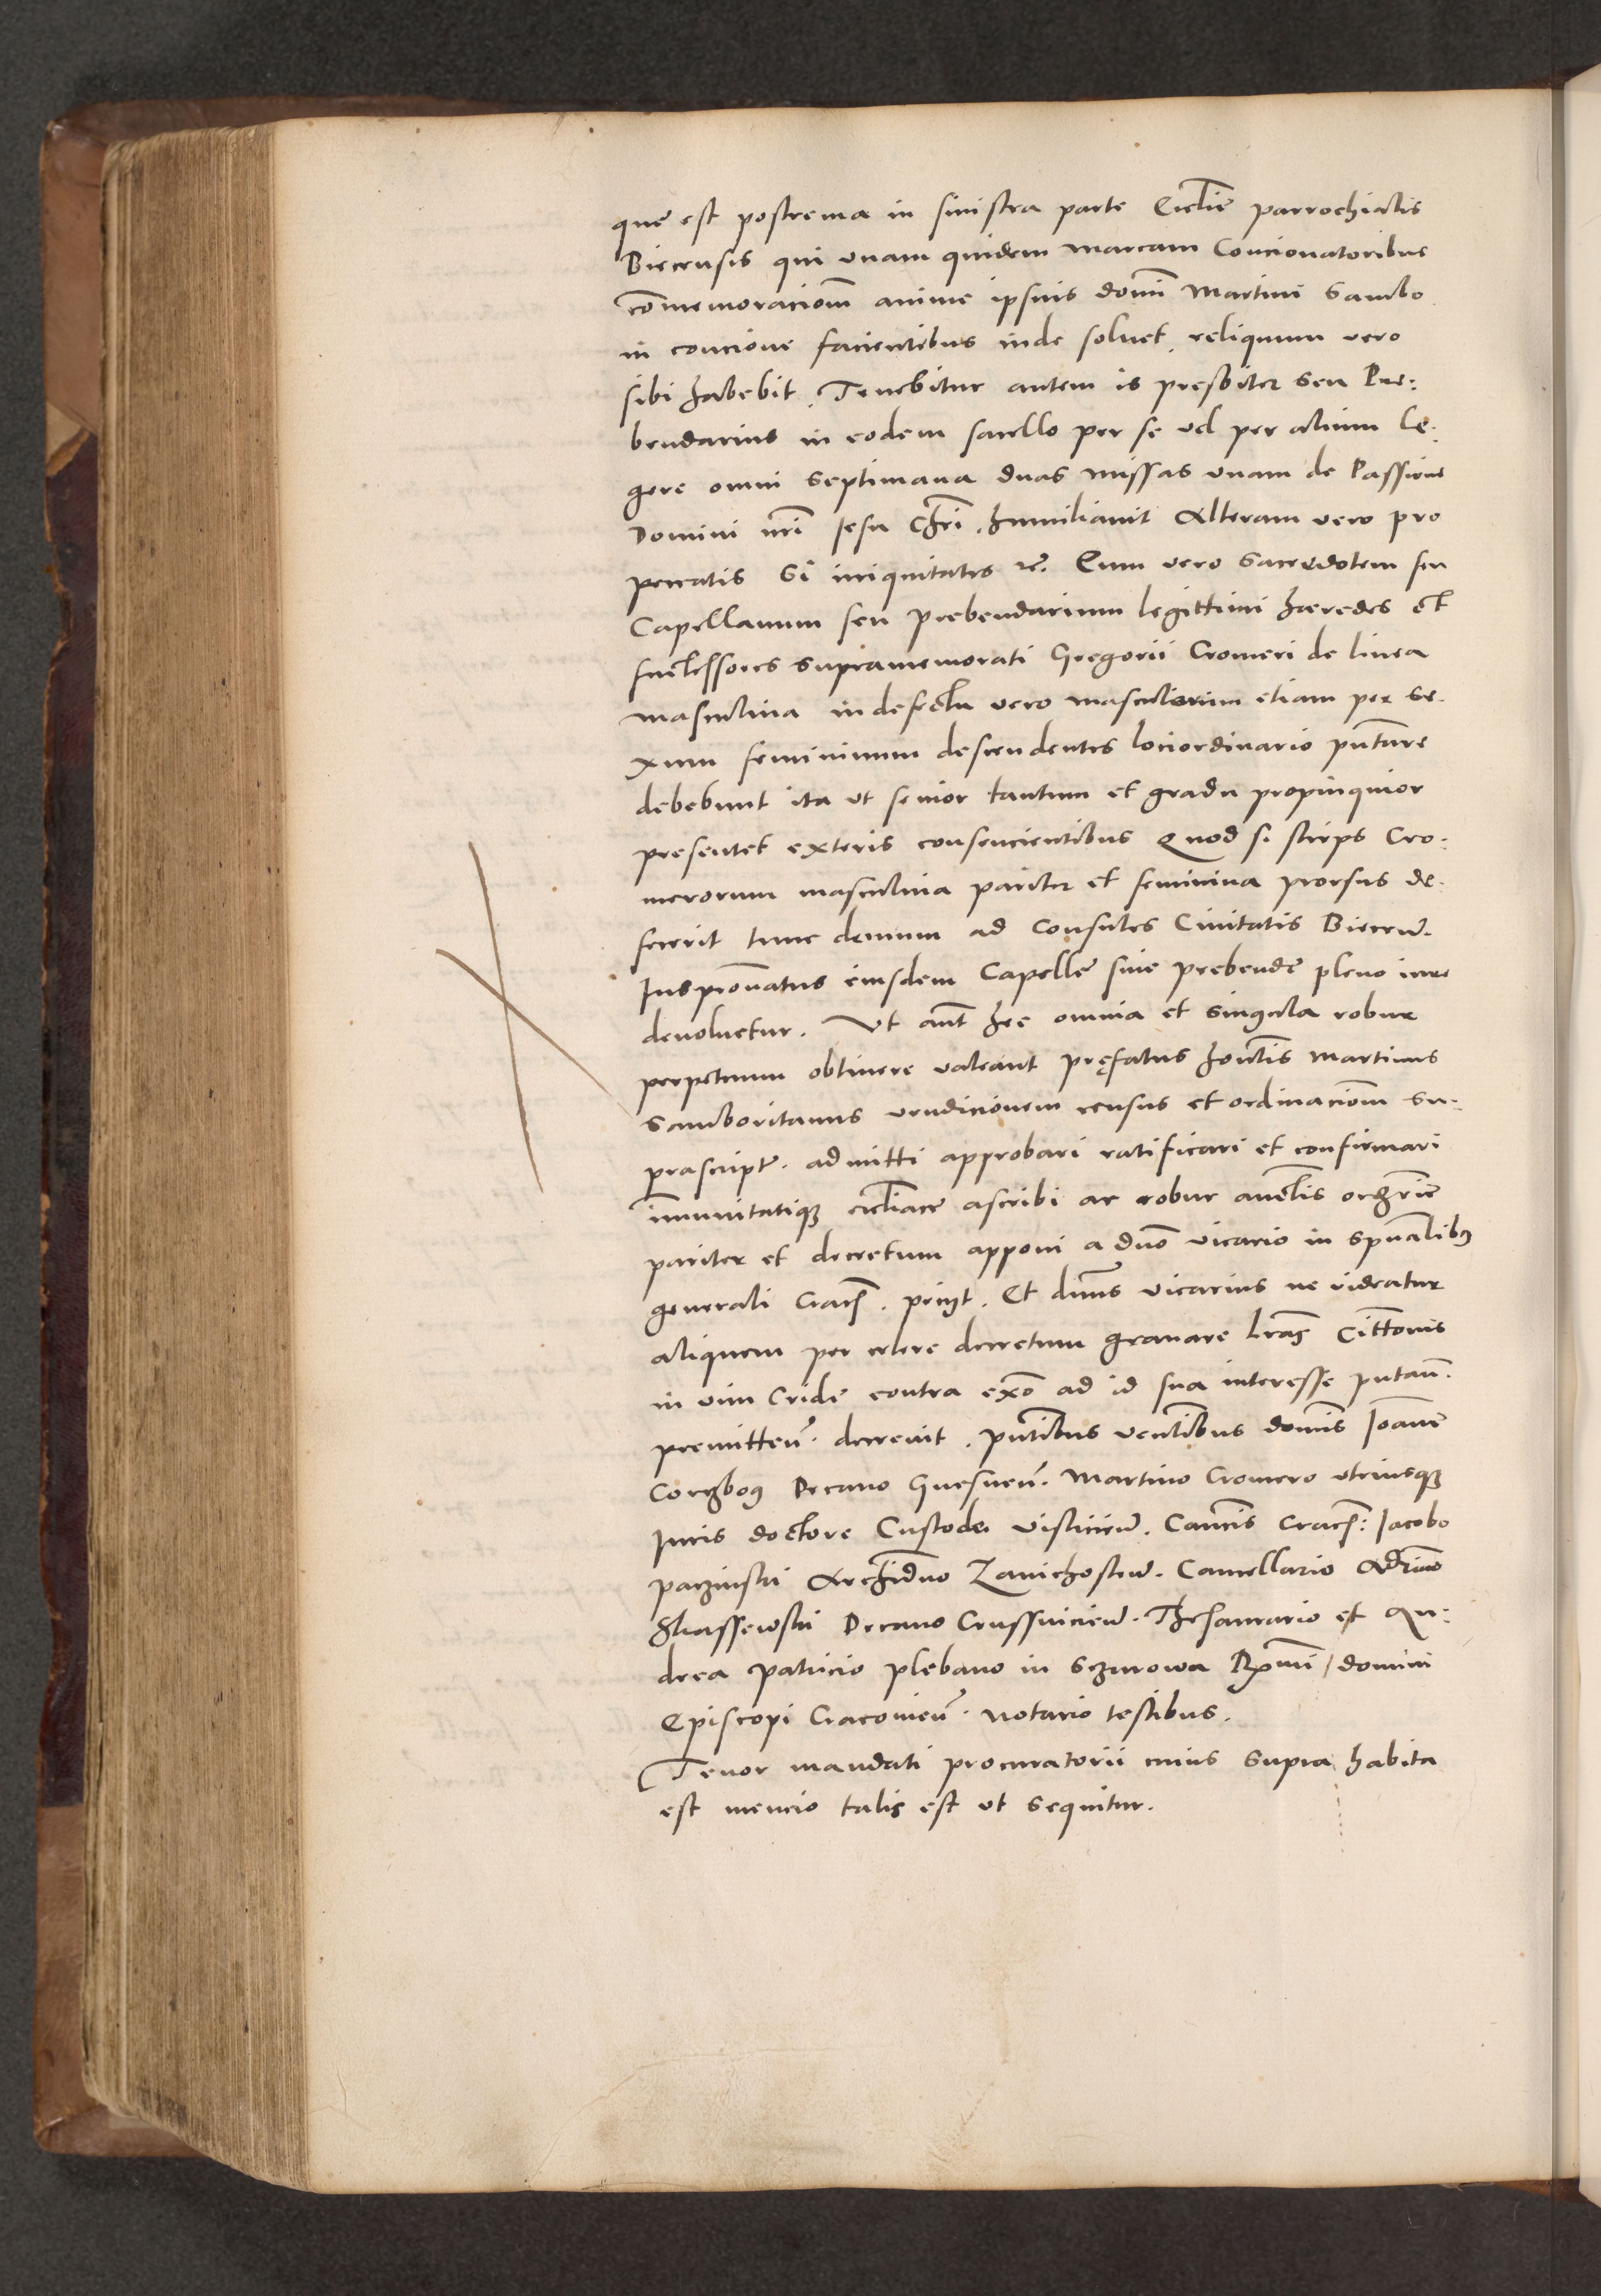 que est postrema in sinistra parte Ecclie parrochialis
Biecensis qui vnam quidem marcam Concionatoribus
cõmemoracionem anime ipsius domĩ Martini Sambo
in concione facientibus inde soluet, reliquum vero
sibi habebit. Tenebitur autem is presbiter seu Pre:
bendarius in eodem sacello per se vel per alium le:
gere omni septimana duas missas vnam de Passione
Domini nr̃i Iesu Chri. humiliauit Alteram vero pro
peccatis Si iniquitates &c̃. Eum vero sacerdotem seu
Capellanum seu prebendarium legittimi hæredes et
successores supramemorati Gregorii Cromeri de linea
masculina in defectu vero masculorum etiam per se:
xum femininum descendentes loci ordinario pñtare
debebunt ita vt senior tantum et gradu propinquior
presentet exteris consencientibus Quod si stirps Cro:
merorum masculina pariter et feminina prorsus de:
fecerit tunc demum ad Consules Ciuitatis Biecen̄.
Iuspr̃onatus eiusdem Capelle siue prebende pleno iure
deuoluetur. Vt aũt hec omnia et singula robur
perpetuum obtinere valeant pręfatus hon̄lis Martinus
Samboritanus vendicionem census et ordinaciom̃ su:
prascript. admitti approbari ratificari et confirmari
im̃unitatiq̃ eccliace ascribi ac robur auc̃tis ord̃rie
pariter et decretum apponi a dño vicario in sp̃ualibꝯ
generali Crac̃. peciit. Et dñus vicarius ne videatur
aliquem per celere decretum grauare l̃ras Cittonis
in vim Cride contra ex̃o ad id sua interesse putan̄.
premitten̄. decreuit. pñtibus ven̄libus domĩs Ioanne
Corzbog Decano Gnesnen̄. Martino Cromero vtriusq̃
Iuris doctore Custode Vislicien̄. Can̄cis Crac̃: Iacobo
paczinski Archid̃no Zawichostien̄. Cancellario Adr̃ino
Sliassewski Decano Crussuicien̄. Thesaurario et An:
drea patricio plebano in Sczurowa R̃xmi domini
Episcopi Cracouien̄. Notario testibus.
Tenor mandati procuratorii cuius supra habita
est mencio talis est vt sequitur.